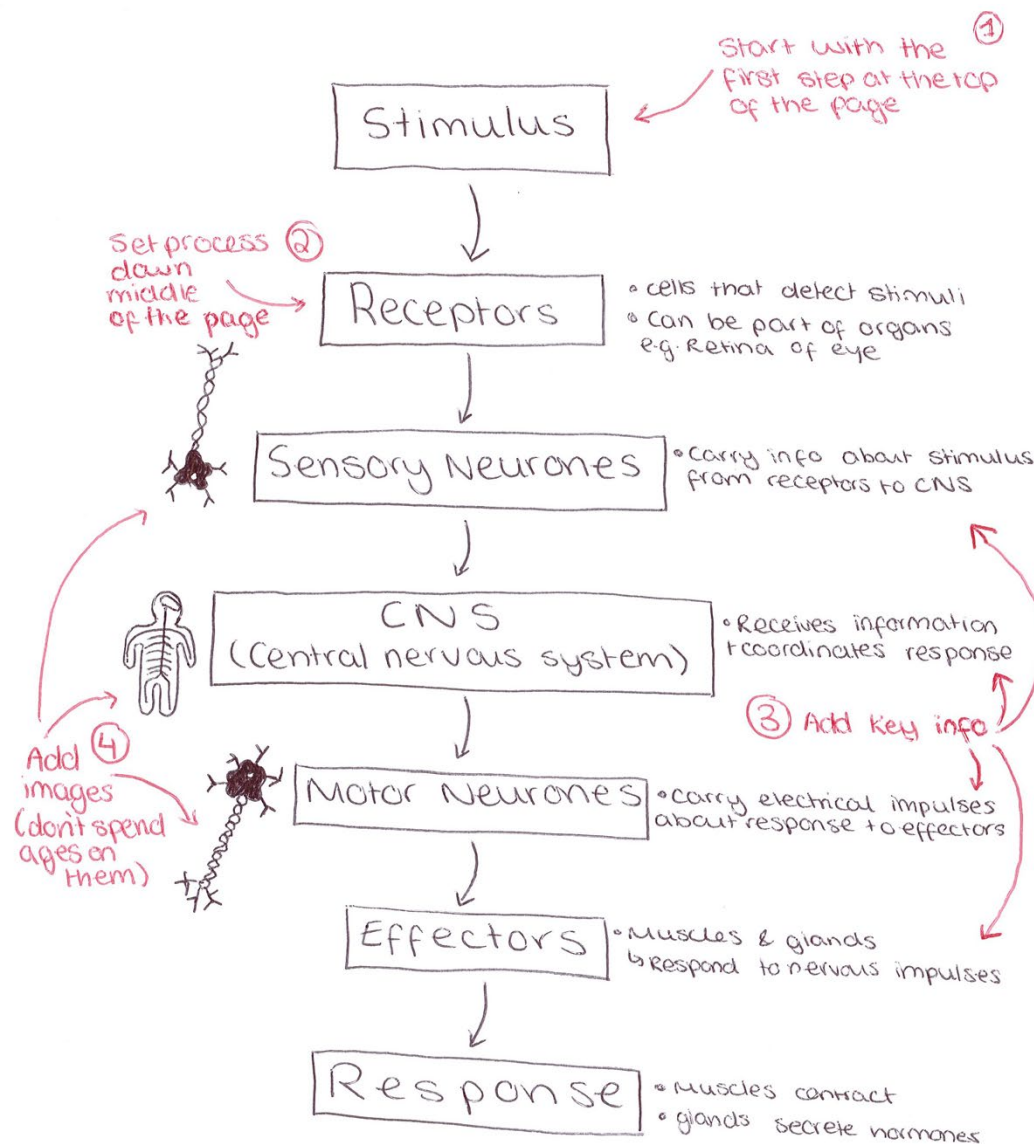 Start with the ①
first step at the top
of the page
Stimulus
Set process ②
down
middle
of the page
Receptors
• cells that detect stimuli
• Can be part of organs
e.g. Retina of eye
Sensory Neurones
• Carry info about stimulus
from receptors to CNS
CNS
(Central nervous system)
• Receives information
+ coordinates response
③ Add key info
Add ④
images
(don't spend
ages on
them)
Motor Neurones
• Carry electrical impulses
about response to effectors
Effectors
• Muscles & glands
↳ Respond to nervous impulses
Response
• Muscles contract
• glands secrete hormones